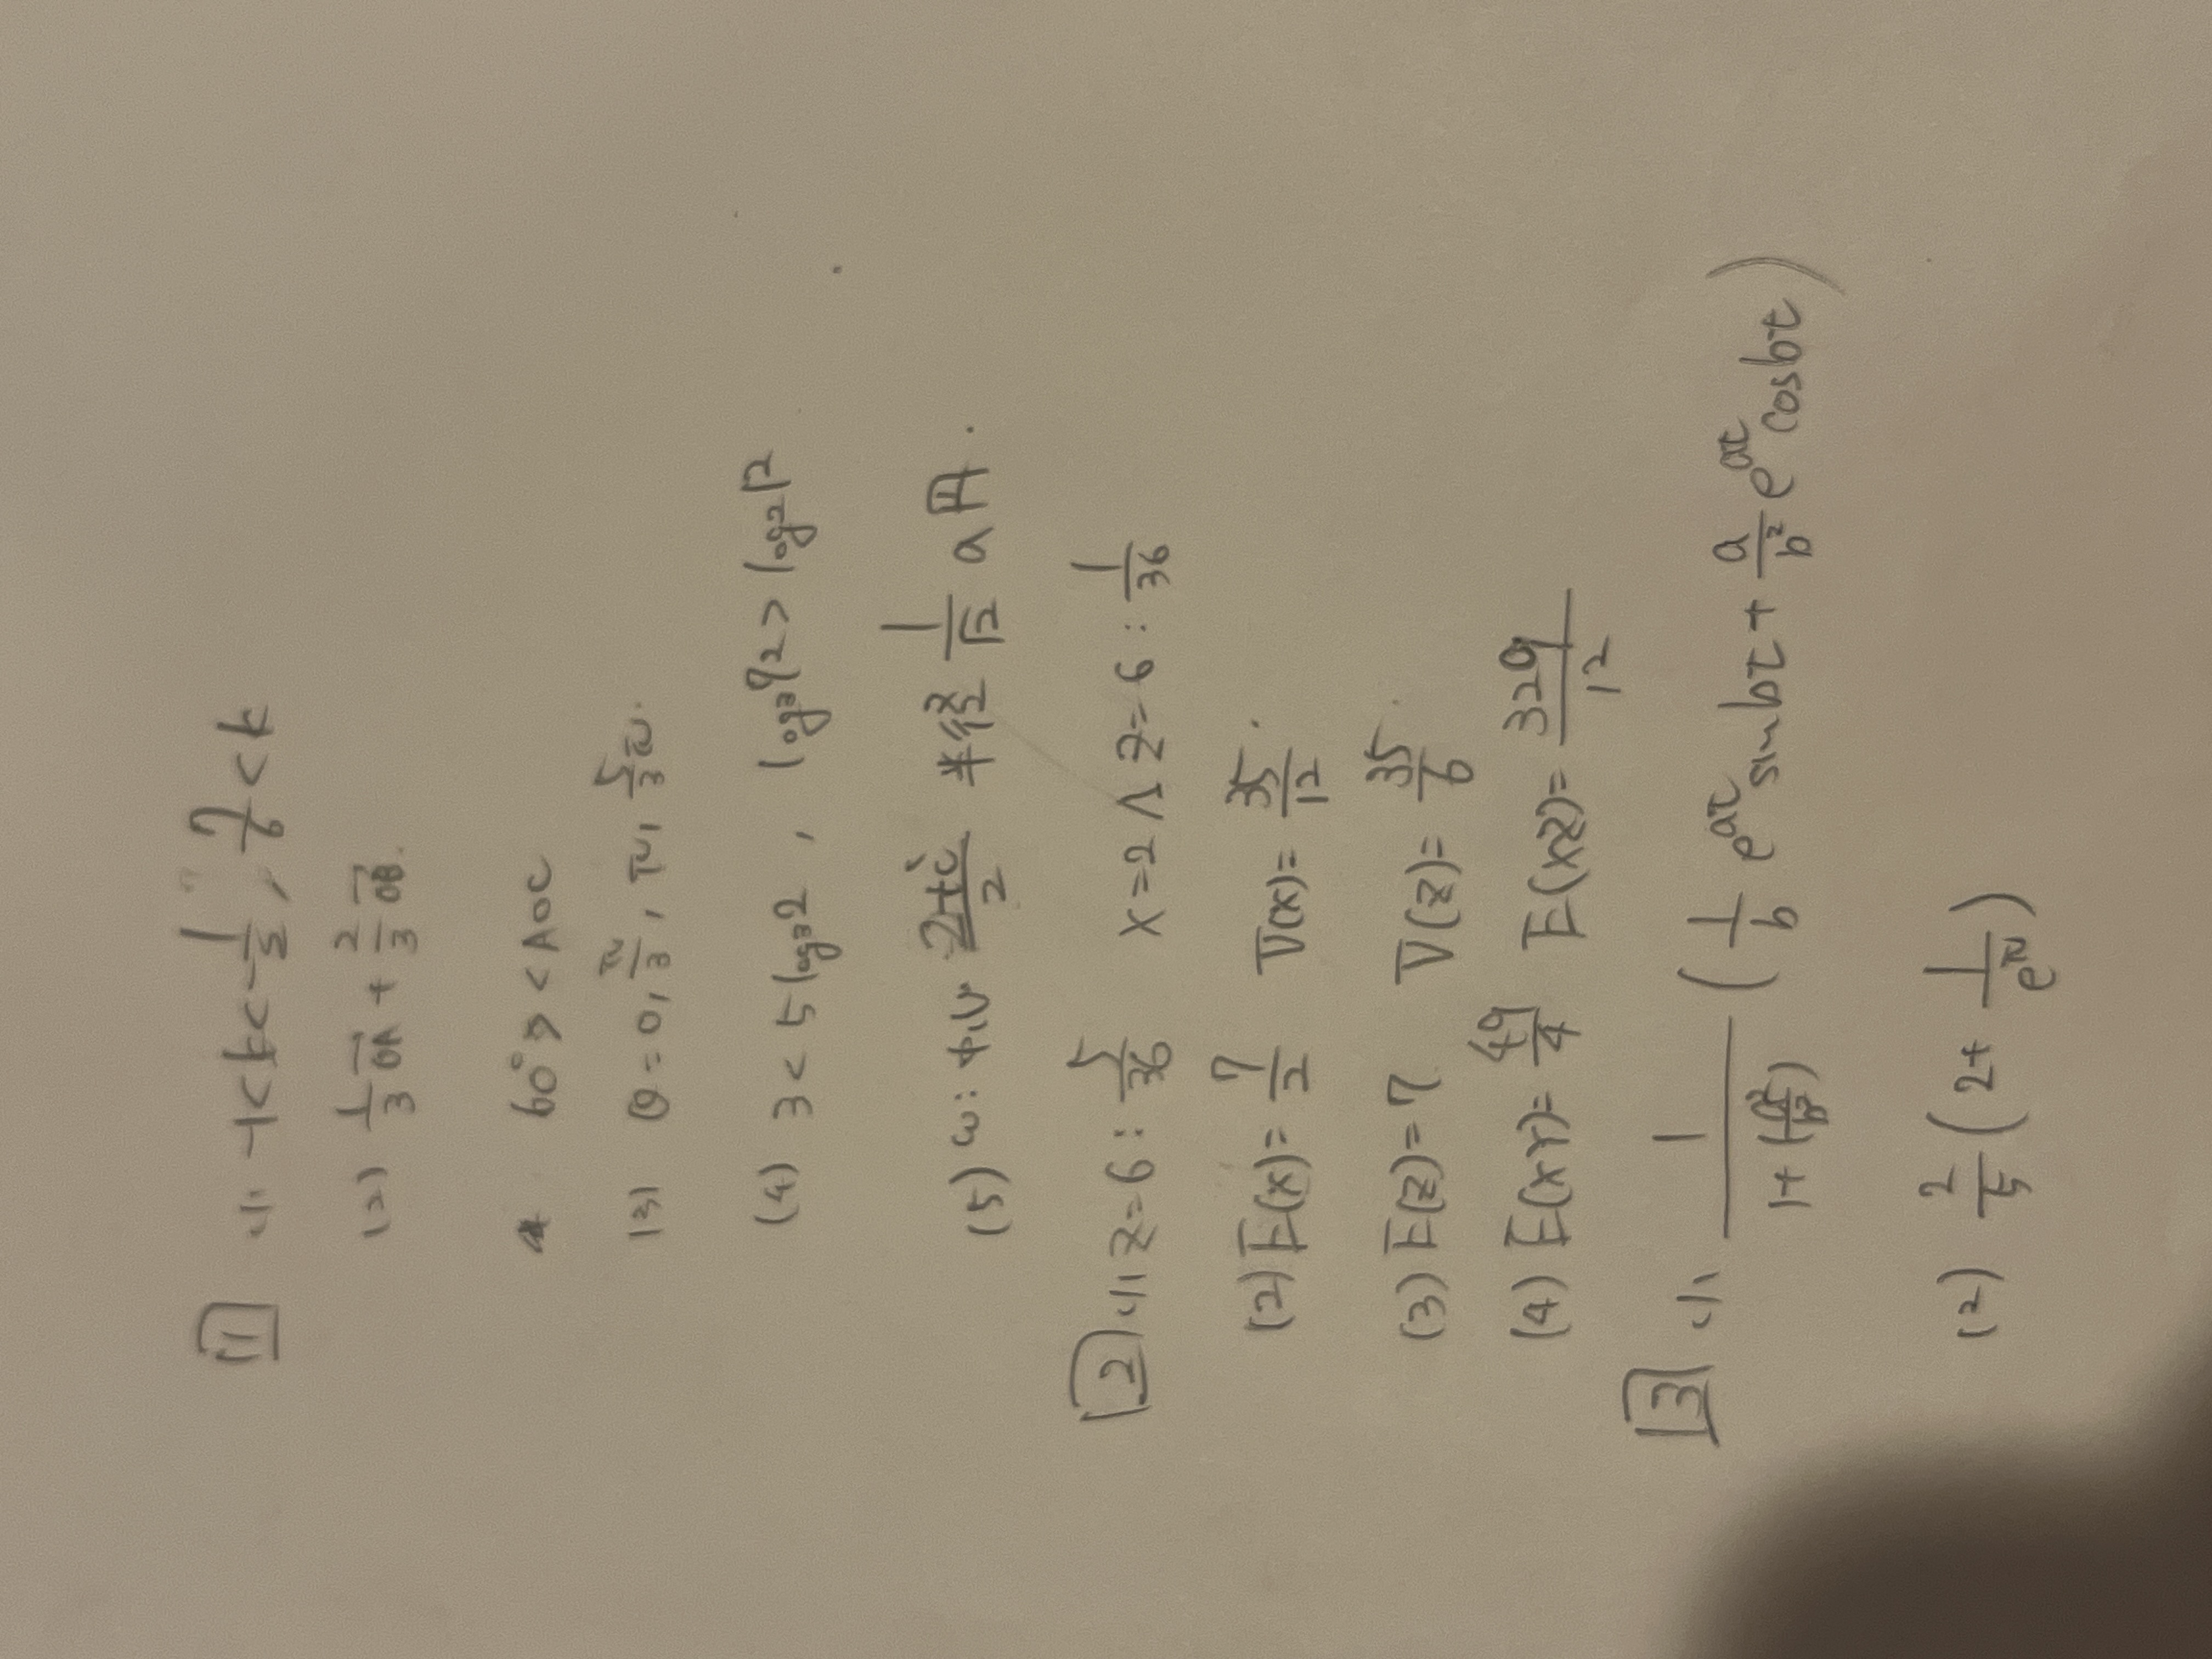 1 (1) -1<k<-1/5, 7/6<k
(2) 1/3 OA + 2/3 OB.
60° > <AOC
(3) θ=0, π/3, π, 5/3 π.
(4) 3 < 5log₃2 , log₃92 > log₂√2
(5) ω: 中心 2+i/2 半径 1/√2 の円.
2 (1) Z=6: 5/36 X=2∧Z=6: 1/36
(2) E(X)= 7/2 V(X)= 35/12.
(3) E(Z)=7 V(Z)= 35/6.
(4) E(XY)= 49/4 E(XZ)= 329/12
3 (1) 1/(1+(a²/b²)) (1/b e^at sinbt + a/b² e^at cosbt)
(2) 2/5 (2+ 1/e^π)